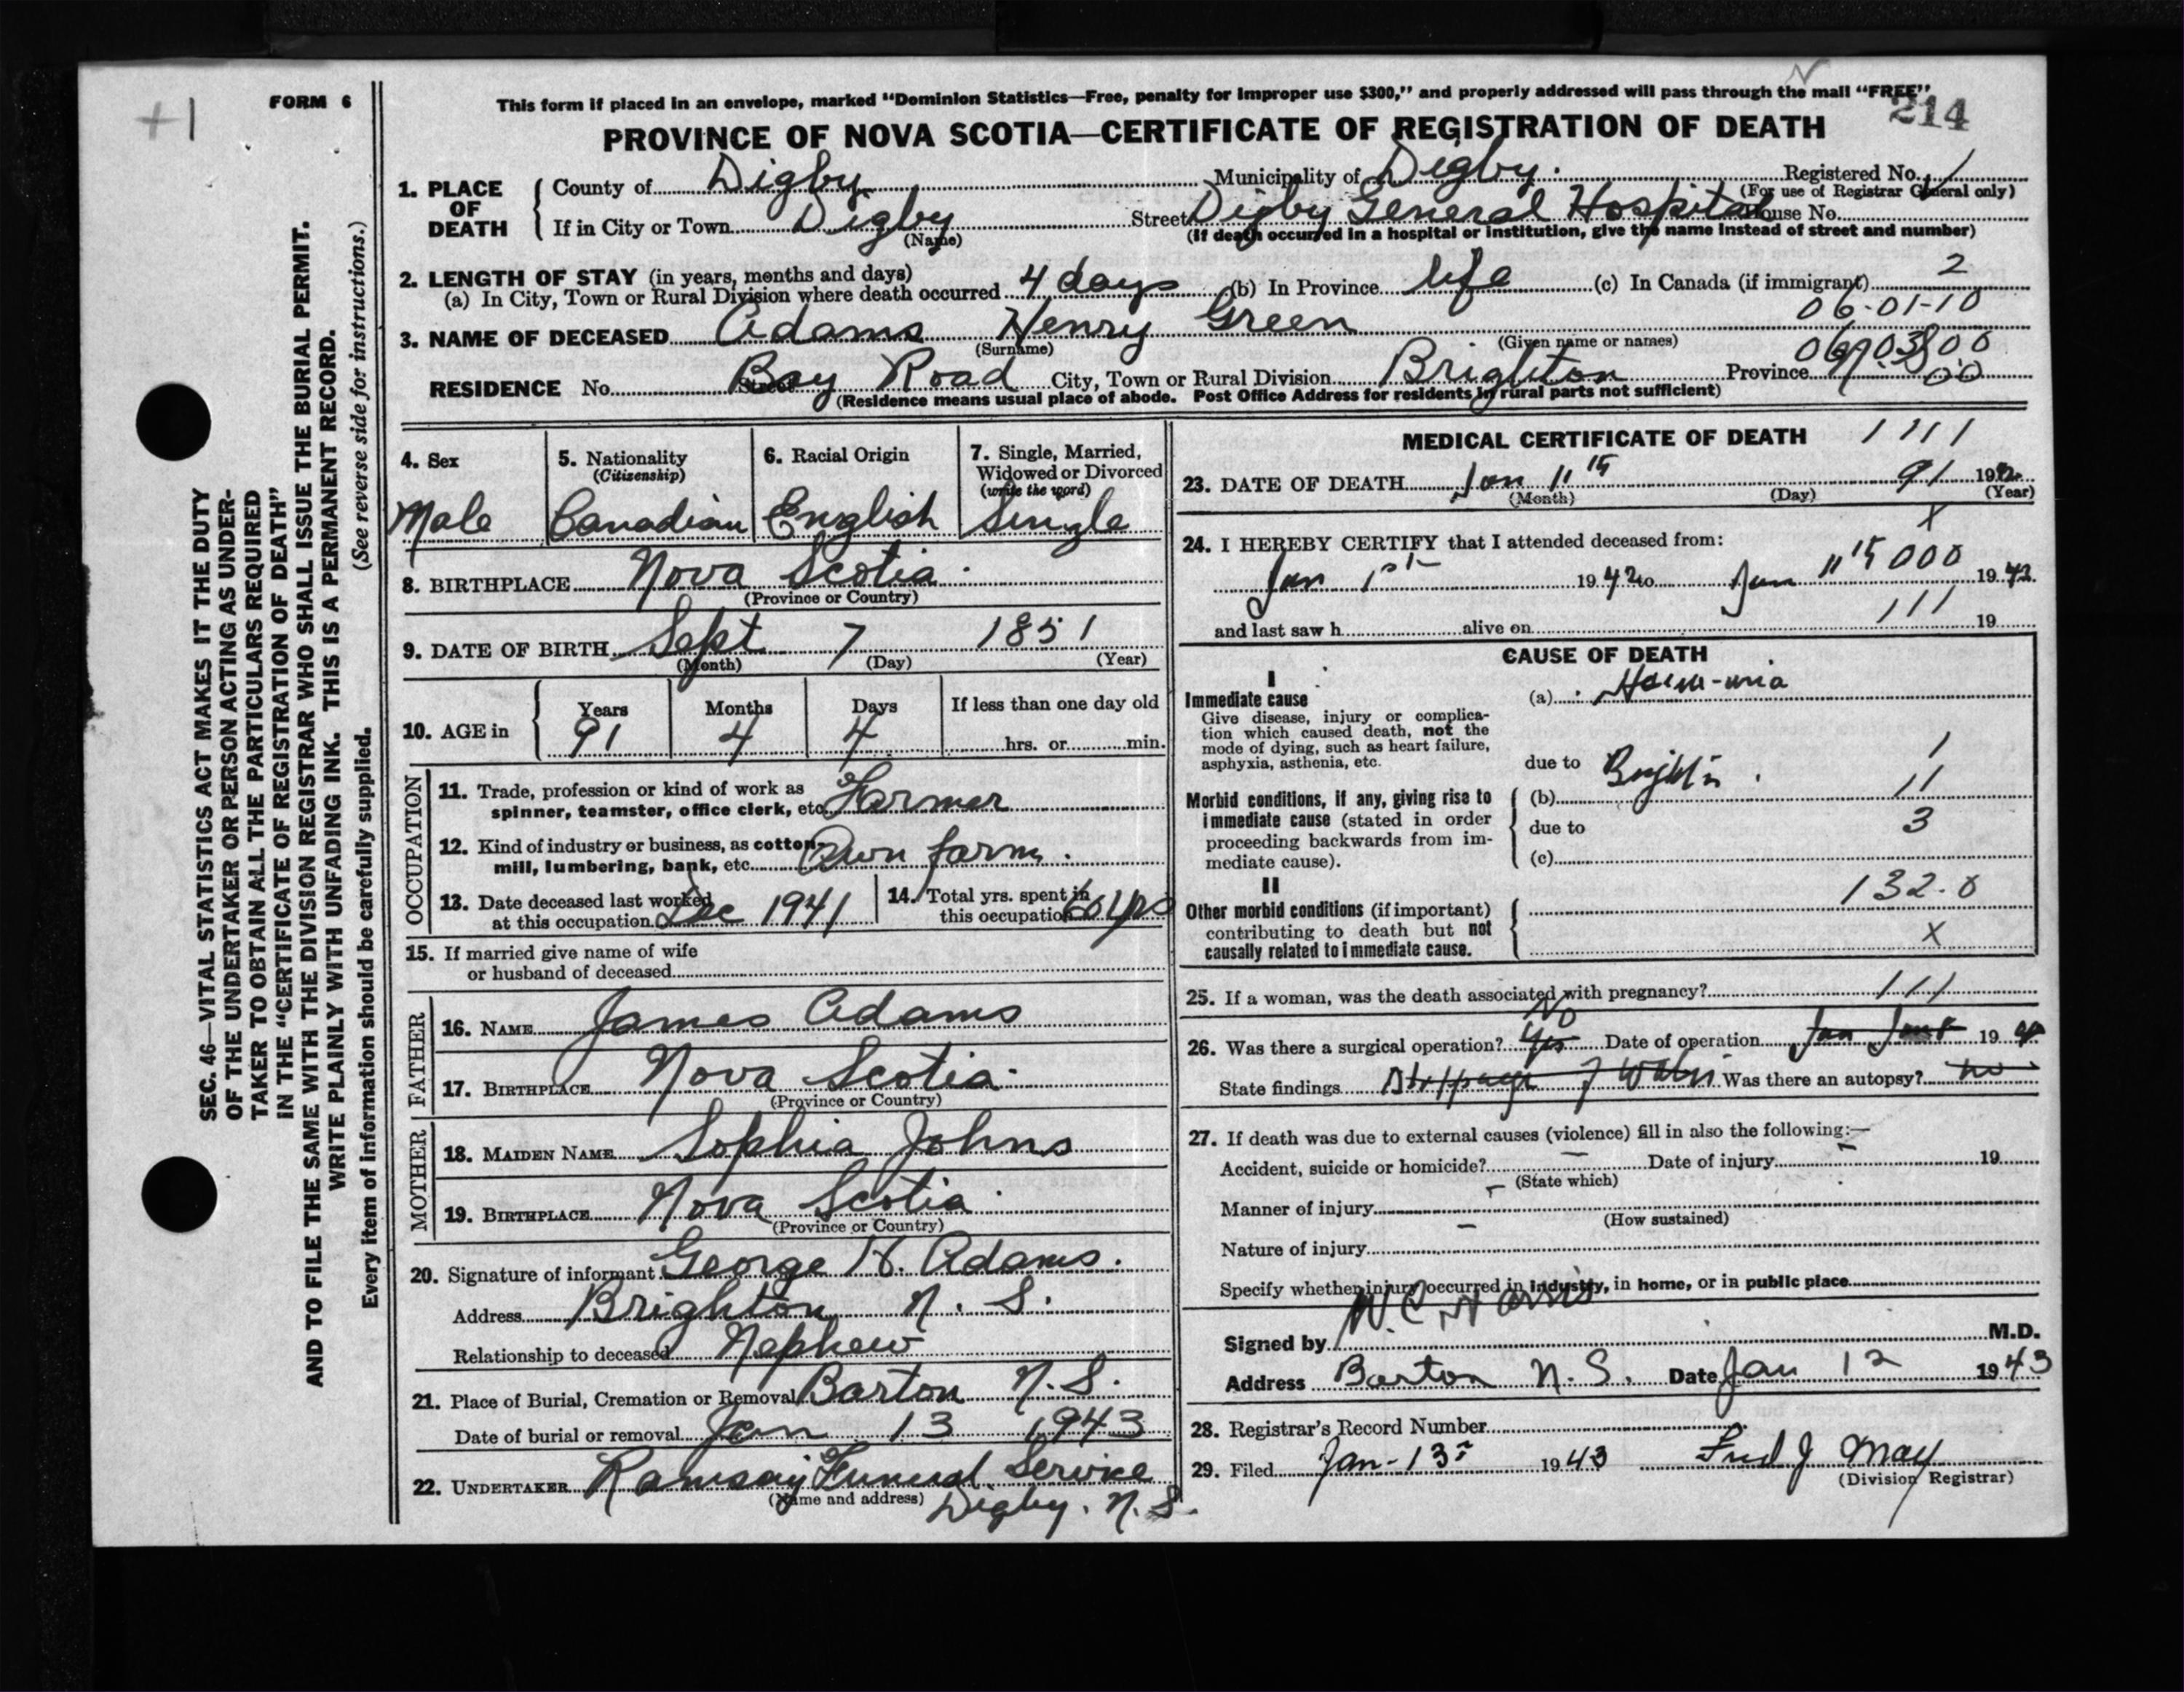 +1
FORM 6
This form if placed in an envelope, marked "Dominion Statistics—Free, penalty for improper use $300," and properly addressed will pass through the mail "FREE"
214
PROVINCE OF NOVA SCOTIA—CERTIFICATE OF REGISTRATION OF DEATH
1. PLACE OF DEATH
County of Digby Municipality of Digby. Registered No. 1
(For use of Registrar General only)
If in City or Town Digby Street Digby General Hospital House No.
(Name) (If death occurred in a hospital or institution, give the name instead of street and number)
2. LENGTH OF STAY (in years, months and days)
(a) In City, Town or Rural Division where death occurred 4 days (b) In Province life (c) In Canada (if immigrant) 2
06-01-10
3. NAME OF DECEASED Adams Henry Green
(Surname) (Given name or names)
RESIDENCE No. Street Bay Road City, Town or Rural Division Brighton Province N.S.
(Residence means usual place of abode. Post Office Address for residents in rural parts not sufficient)
SEC. 46—VITAL STATISTICS ACT MAKES IT THE DUTY
OF THE UNDERTAKER OR PERSON ACTING AS UNDER-
TAKER TO OBTAIN ALL THE PARTICULARS REQUIRED
IN THE "CERTIFICATE OF REGISTRATION OF DEATH"
AND TO FILE THE SAME WITH THE DIVISION REGISTRAR WHO SHALL ISSUE THE BURIAL PERMIT.
WRITE PLAINLY WITH UNFADING INK. THIS IS A PERMANENT RECORD.
(See reverse side for instructions.)
Every item of information should be carefully supplied.
4. Sex
Male
5. Nationality
(Citizenship)
Canadian
6. Racial Origin
English
7. Single, Married,
Widowed or Divorced
(write the word)
Single
8. BIRTHPLACE Nova Scotia.
(Province or Country)
9. DATE OF BIRTH Sept 7 1851
(Month) (Day) (Year)
10. AGE in
Years Months Days If less than one day old
91 4 4 hrs. or min.
OCCUPATION
11. Trade, profession or kind of work as
spinner, teamster, office clerk, etc. Farmer
12. Kind of industry or business, as cotton-
mill, lumbering, bank, etc. Own farm.
13. Date deceased last worked
at this occupation Dec 1941
14. Total yrs. spent in
this occupation 60 yrs
15. If married give name of wife
or husband of deceased
FATHER
16. NAME James Adams
17. BIRTHPLACE Nova Scotia.
(Province or Country)
MOTHER
18. MAIDEN NAME Sophia Johns
19. BIRTHPLACE Nova Scotia.
(Province or Country)
20. Signature of informant George H. Adams.
Address Brighton N. S.
Relationship to deceased Nephew
21. Place of Burial, Cremation or Removal Barton N.S.
Date of burial or removal Jan 13 1943
22. UNDERTAKER Ramsay Funeral Service
(Name and address) Digby. N.S.
MEDICAL CERTIFICATE OF DEATH 1111
23. DATE OF DEATH Jan 11 91 19
(Month) (Day) (Year)
x
24. I HEREBY CERTIFY that I attended deceased from:
Jan 1st 1942 to Jan 11 000 1942
and last saw h alive on 111 19
CAUSE OF DEATH
I
Immediate cause
Give disease, injury or complica-
tion which caused death, not the
mode of dying, such as heart failure,
asphyxia, asthenia, etc.
(a)
due to 1
Morbid conditions, if any, giving rise to
immediate cause (stated in order
proceeding backwards from im-
mediate cause).
(b) 11
due to 3
(c)
II
Other morbid conditions (if important)
contributing to death but not
causally related to immediate cause.
132.0
X
25. If a woman, was the death associated with pregnancy? 111
26. Was there a surgical operation? No Yes Date of operation Jan 19
State findings Was there an autopsy? no
27. If death was due to external causes (violence) fill in also the following:—
Accident, suicide or homicide? — Date of injury — 19
(State which)
Manner of injury —
(How sustained)
Nature of injury —
Specify whether injury occurred in industry, in home, or in public place
Signed by W. C. Harris M.D.
Address Barton N.S. Date Jan 12 1943
28. Registrar's Record Number
29. Filed Jan-13 1943 Fred J May
(Division Registrar)